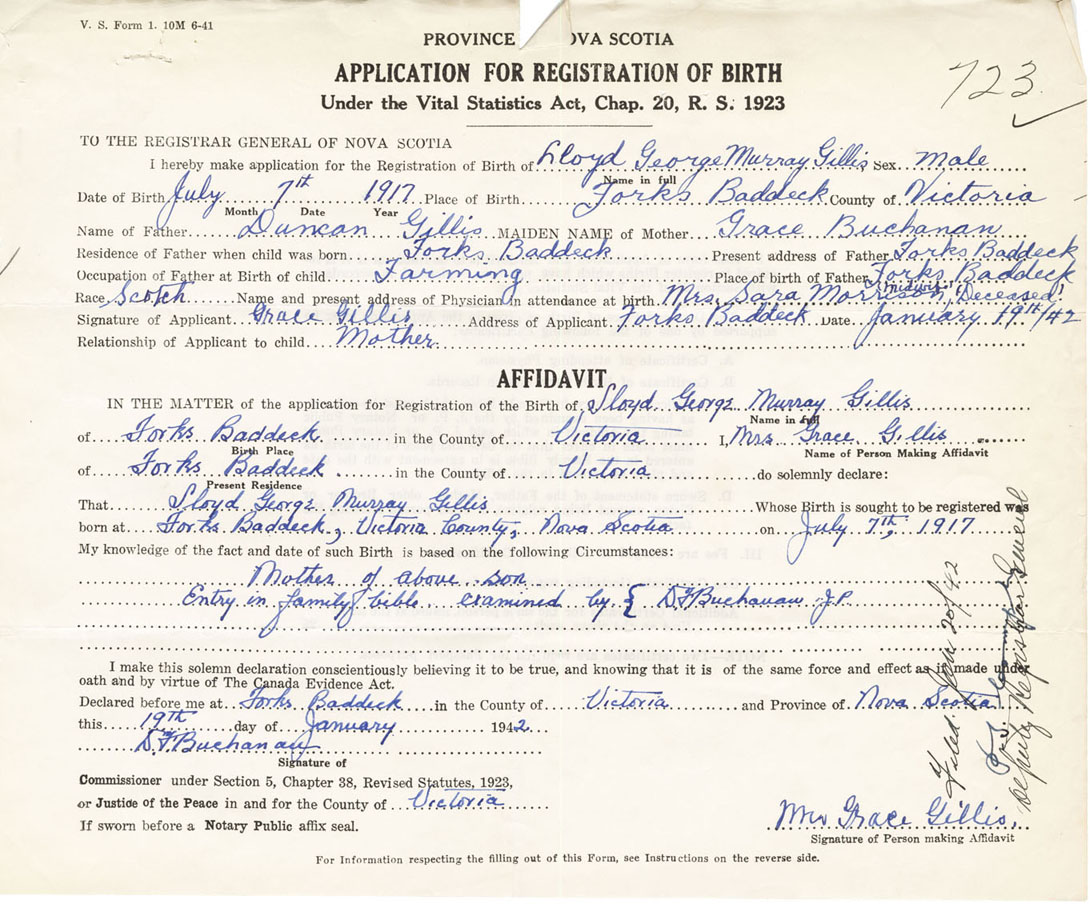 V. S. Form 1. 10M 6-41
PROVINCE OVA SCOTIA
APPLICATION FOR REGISTRATION OF BIRTH
Under the Vital Statistics Act, Chap. 20, R. S. 1923
723
TO THE REGISTRAR GENERAL OF NOVA SCOTIA
I hereby make application for the Registration of Birth of Lloyd George Murray Gillis Sex male
Name in full
Date of Birth July 7th 1917 Place of Birth Forks Baddeck County of Victoria
Month Date Year
Name of Father Duncan Gillis MAIDEN NAME of Mother Grace Buchanan
Residence of Father when child was born Forks Baddeck Present address of Father Forks Baddeck
Occupation of Father at Birth of child Farming Place of birth of Father Forks Baddeck
midwife
Race Scotch Name and present address of Physician in attendance at birth Mrs. Sara Morrison, (Deceased)
Signature of Applicant Grace Gillis Address of Applicant Forks Baddeck Date January 19th/42
Relationship of Applicant to child Mother
AFFIDAVIT
IN THE MATTER of the application for Registration of the Birth of Lloyd George Murray Gillis
Name in full
of Forks Baddeck in the County of Victoria I, Mrs Grace Gillis
Birth Place Name of Person Making Affidavit
of Forks Baddeck in the County of Victoria do solemnly declare:
Present Residence
That Lloyd George Murray Gillis Whose Birth is sought to be registered was
born at Forks Baddeck, Victoria County, Nova Scotia on July 7th, 1917
My knowledge of the fact and date of such Birth is based on the following Circumstances:
Mother of above son
Entry in family bible examined by { D F Buchanan J.P.
I make this solemn declaration conscientiously believing it to be true, and knowing that it is of the same force and effect as if made under
oath and by virtue of The Canada Evidence Act.
Declared before me at Forks Baddeck in the County of Victoria and Province of Nova Scotia
this 19th day of January 1942
D. F. Buchanan
Signature of
Commissioner under Section 5, Chapter 38, Revised Statutes, 1923,
or Justice of the Peace in and for the County of Victoria
If sworn before a Notary Public affix seal.
Mrs Grace Gillis.
Signature of Person making Affidavit
For Information respecting the filling out of this Form, see Instructions on the reverse side.
Filed. Jan 20/42
Deputy Registrar General